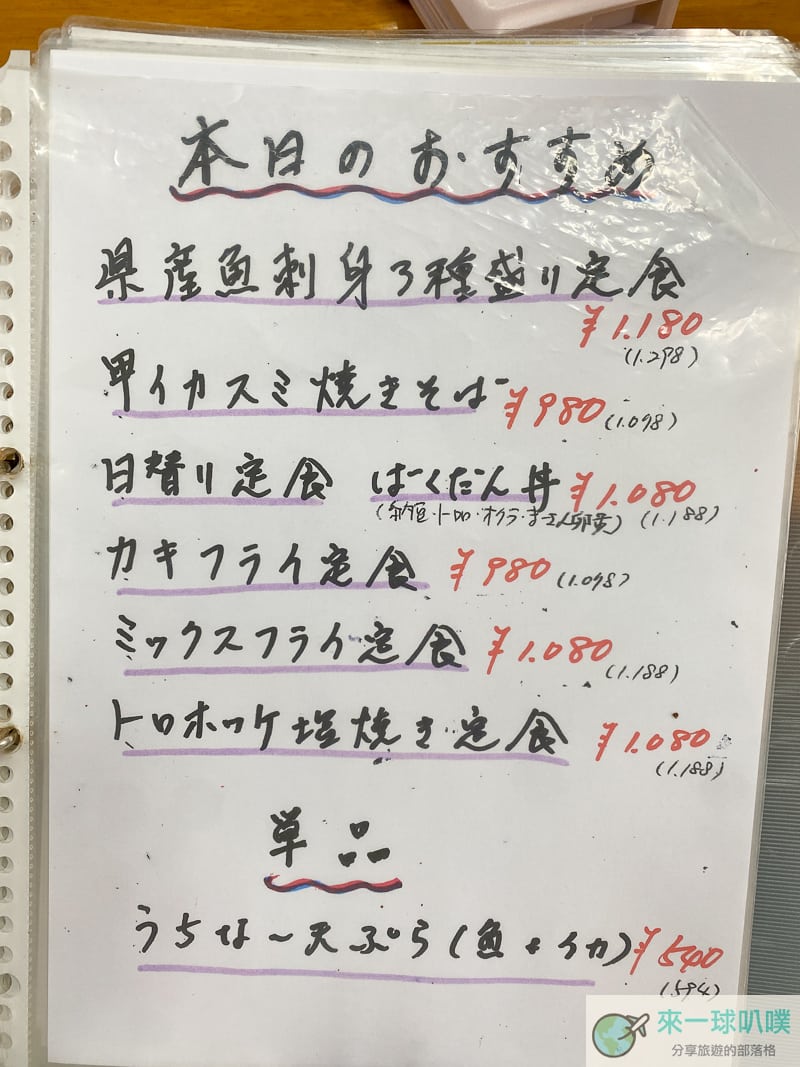 本日のおすすめ
県産魚刺身3種盛り定食
¥1.180
(1.298)
甲イカスミ焼きそば ¥980 (1.098)
日替り定食 ばくだん丼 ¥1.080
(納豆・トロロ・オクラ・まぐろ・卵黄) (1.188)
カキフライ定食 ¥980 (1.098)
ミックスフライ定食 ¥1.080
(1.188)
トロホッケ塩焼き定食 ¥1.080
(1.188)
単品
うちなー天ぷら(魚+イカ) ¥540
(594)
來一球叭噗
分享旅遊的部落格